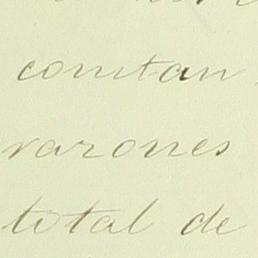 constan
varones
total de